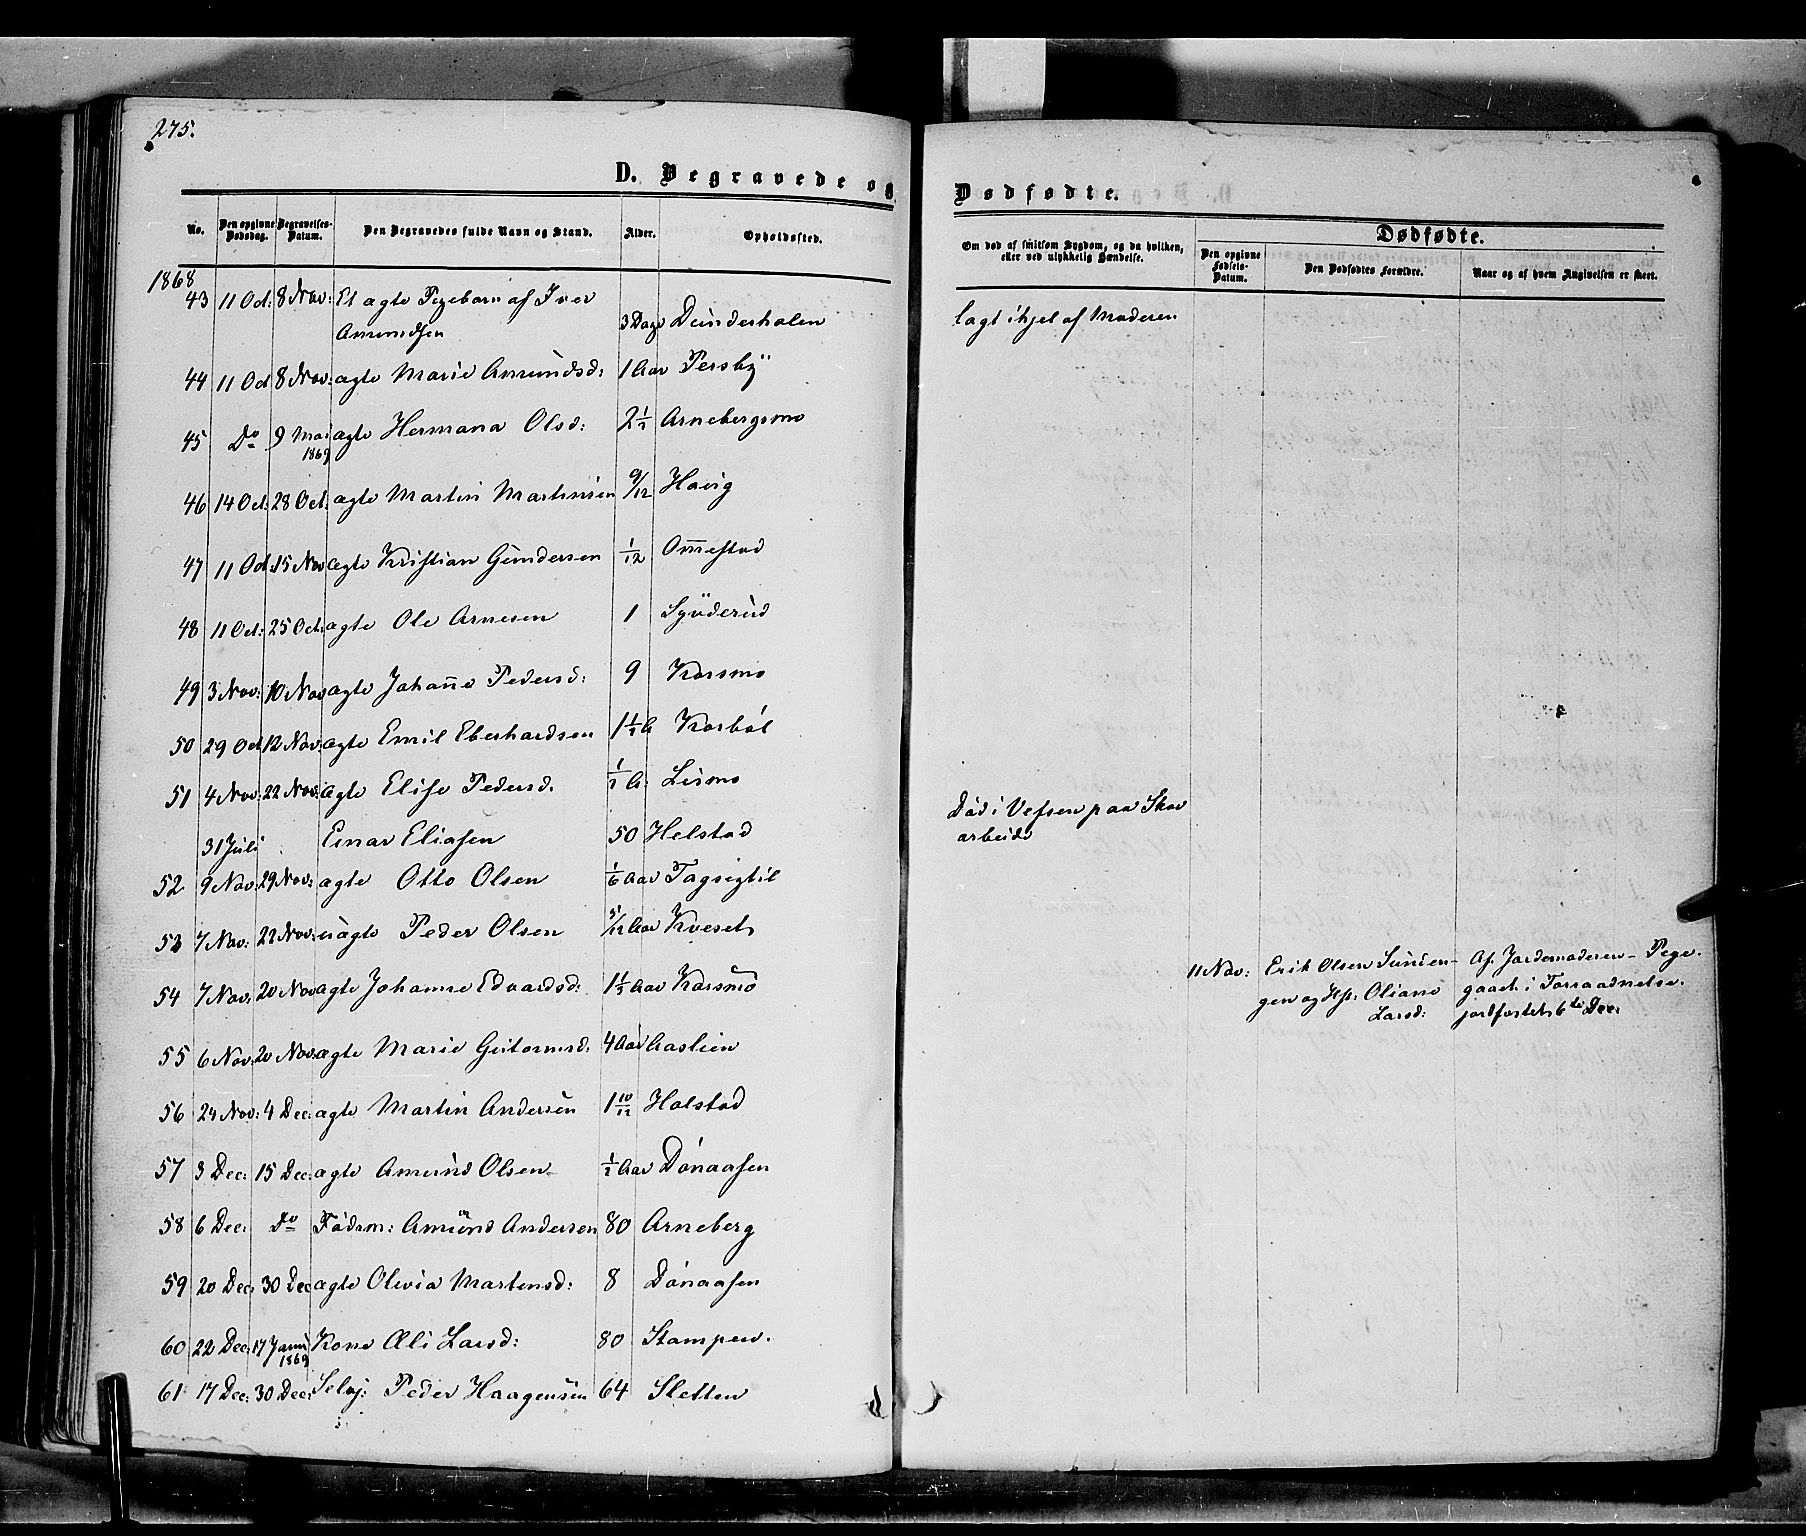 275.
D. Begravede og
Dødfødte.
No.
Den opgivne Dødsdag.
Begravelses-Datum.
Den Begravedes fulde Navn og Stand.
Alder.
Opholdssted.
Om død af smitsom Sygdom, og da hvilken, eller ved ulykkelig Hændelse.
Dødfødte.
Den opgivne Fødsels-Datum.
Den Dødfødtes Forældre.
Naar og af hvem Angivelsen er skeet.
1868
43 11 Oct: 8 Nov: Et ægte Pigebarn af Iver
Amundsen 3 Dage Dunderholen lagt ihjel af Moderen
44 11 Oct 8 Nov: ægte Marie Amundsd: 1 Aar Persby
45 Do 9 Mai 1869 ægte Hermana Olsd: 2½ Arnebergsmo
46 14 Oct: 28 Oct: ægte Martin Martinsen 9/12 Havig
47 11 Oct 15 Nov ægte Kristian Gundersen 1/12 Om̄estad
48 11 Oct: 25 Oct: ægte Ole Arnesen 1
49 3 Nov: 10 Nov ægte Johan̄e Pedersd: 9 Karsmo
50 29 Oct 12 Nov: ægte Emil Eberhardsen 1½ A Karbøl
51 4 Nov: 22 Nov: ægte Elise Pedersd. ½ A: Lismo
31 Juli Einar Eliasen 50 Helstad Død i Vefsen paa Skov
arbeide
52 9 Nov: 29 Nov: ægte Otto Olsen 1/6 Aar
53 7 Nov: 22 Nov: uægte Peder Olsen 5/12 Aar Kveset
11 Nov: Erik Olsen Af Jordemoderen – Pige.
54 7 Nov: 20 Nov ægte Johanne Edvardsd: 1½ Aar Karsmo
gen og H: Oliane gaaet i Forraadnelse.
Larsd: jordfæstet 6te Dec:
55 6 Nov: 20 Nov: ægte Marie Gutormsd: 4 Aar Aaslien
56 24 Nov: 4 Dec: ægte Martin Andersen 1 10/12 Halstad
57 3 Dec: 15 Dec: ægte Amund Olsen ½ Aar Dønaasen
58 6 Dec: Do Fødsm: Amund Andersen 80 Arneberg
59 20 Dec: 30 Dec ægte Olivia Martensd: 8 Dønaasen
60 22 Dec: 17 Janu 1869 Kone Eli Larsd: 80 Stampen.
61 17 Dec: 30 Dec: Selvej: Peder Haagensen 64 Sletten